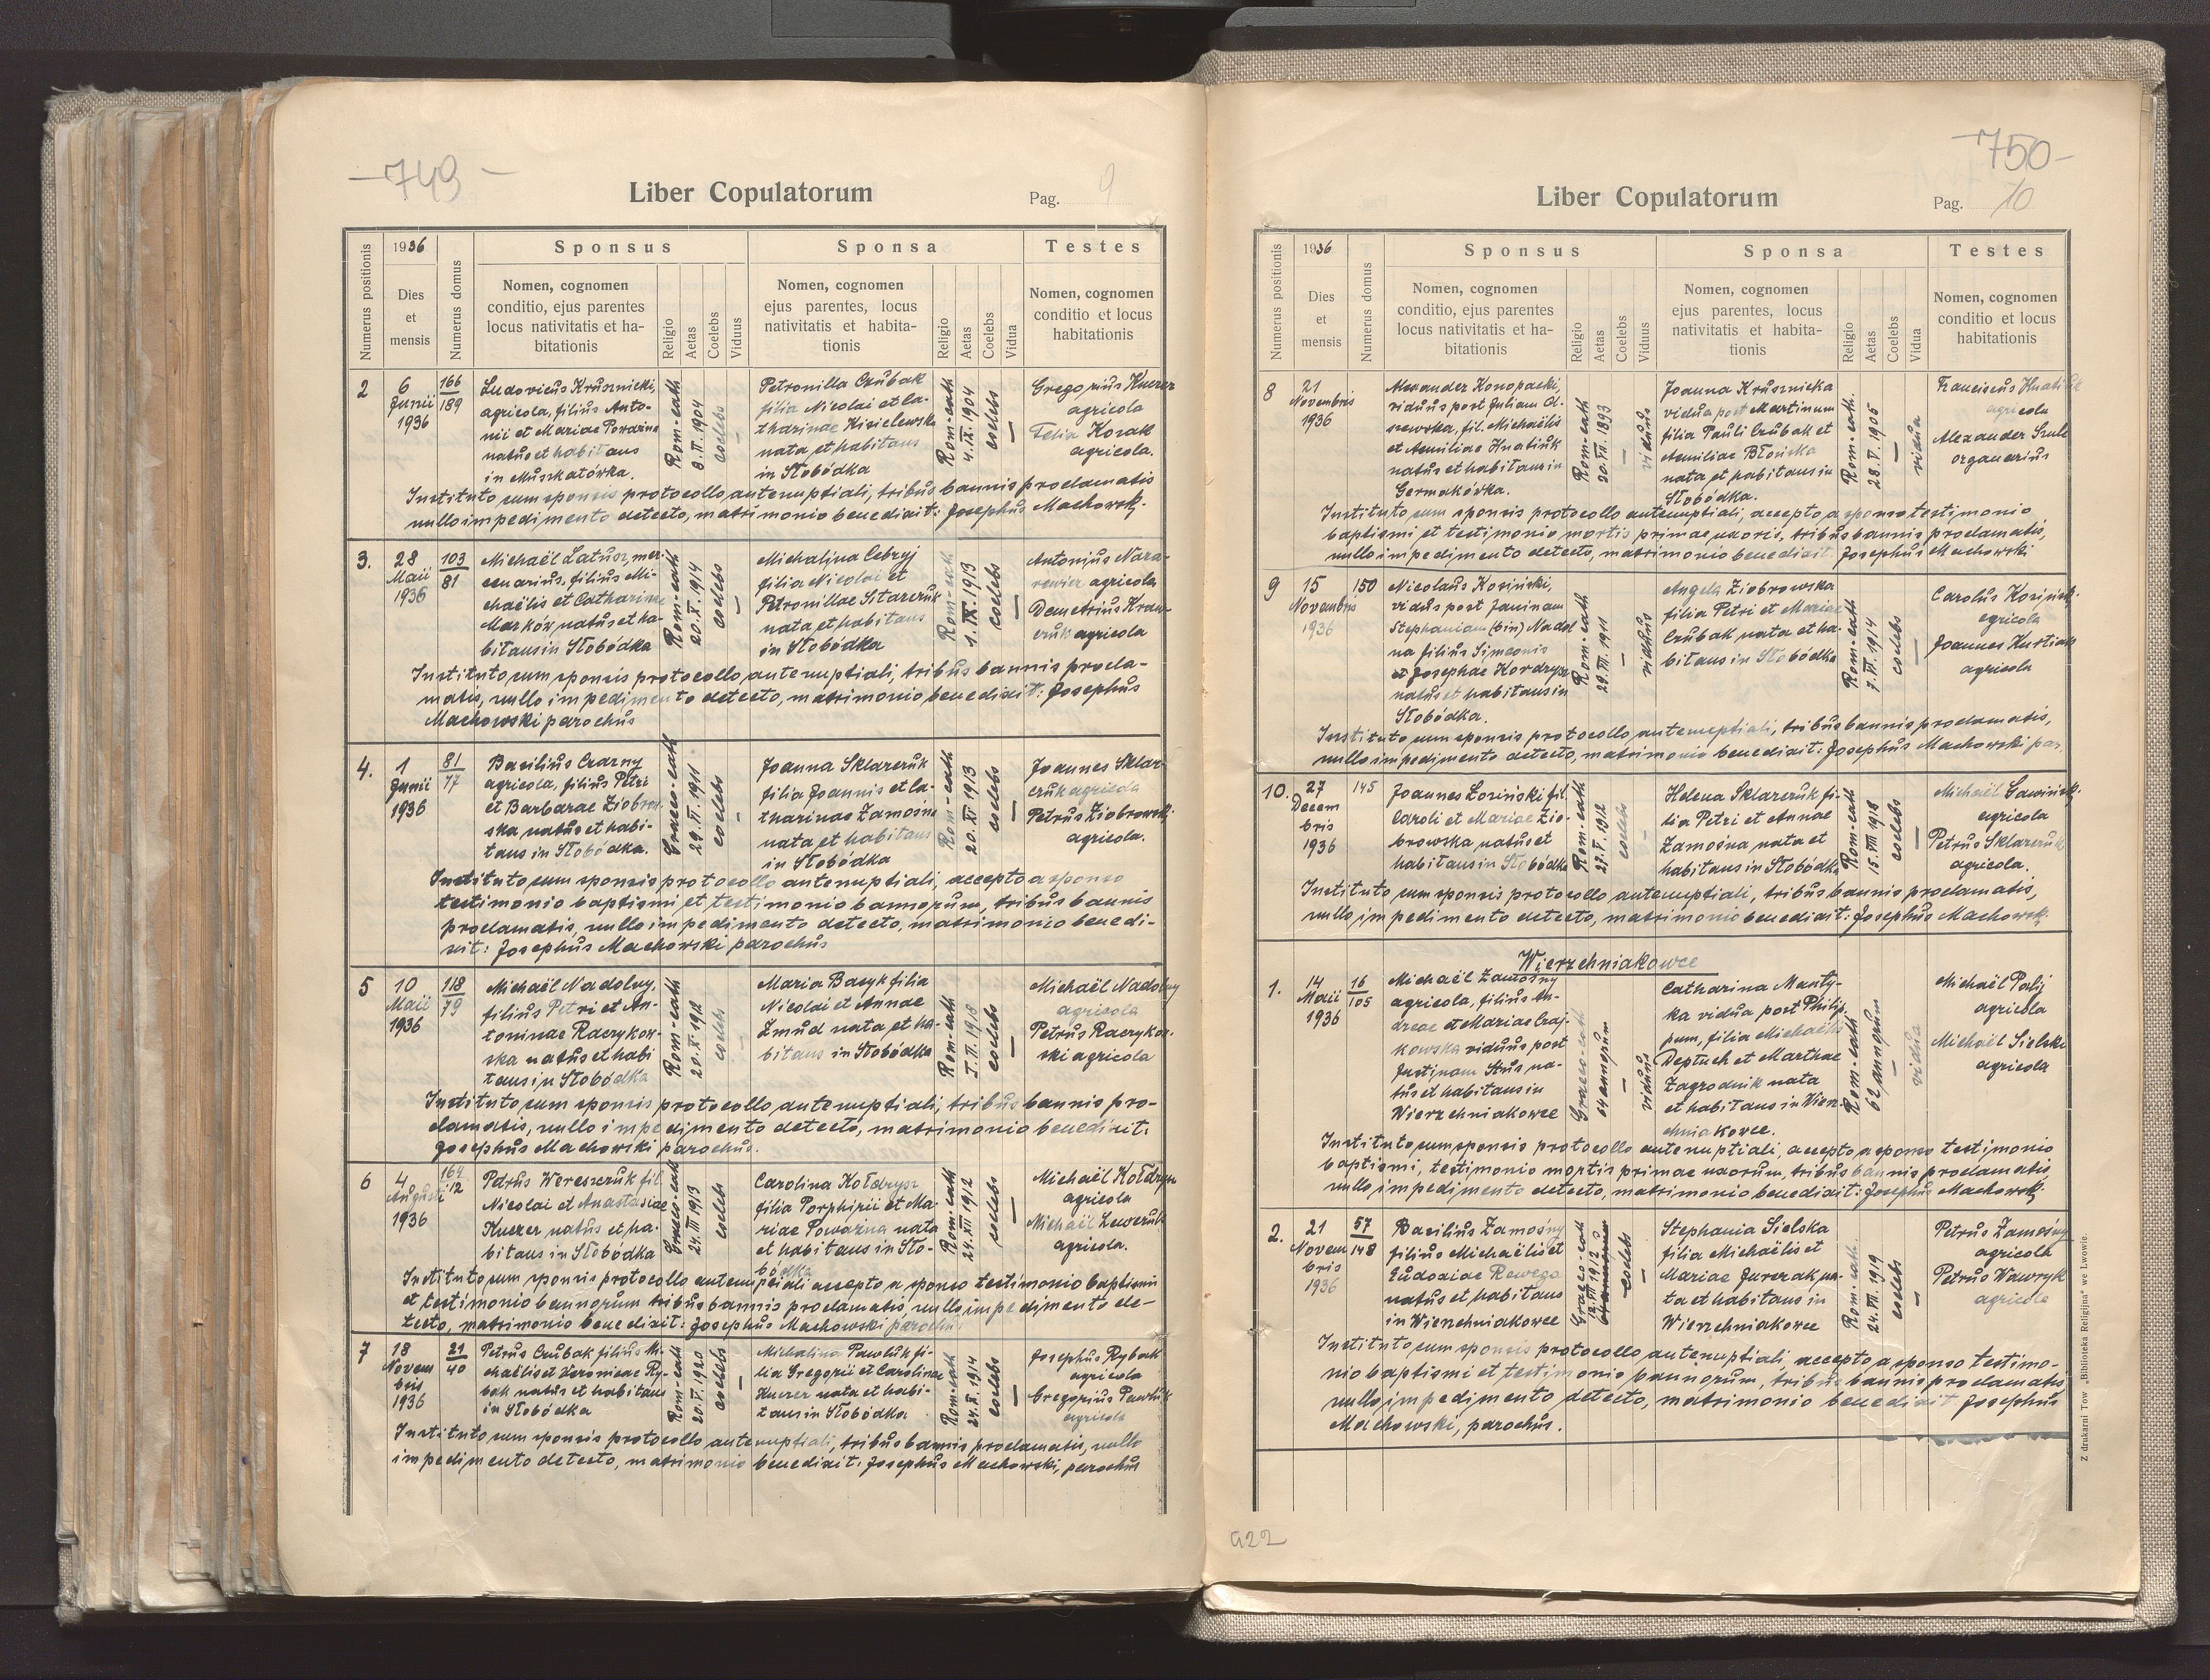 —749—
Liber Copulatorum
Pag. 9
Numerus positionis
1936
Dies
et
mensis
Numerus domus
Sponsus
Nomen, cognomen
conditio, ejus parentes
locus nativitatis et ha-
bitationis
Religio
Aetas
Coelebs
Viduus
Sponsa
Nomen, cognomen
ejus parentes, locus
nativitatis et habita-
tionis
Religio
Aetas
Coelebs
Vidua
Testes
Nomen, cognomen
conditio et locus
habitationis
2
6
Junii
1936
166
189
Ludovicus Krusznicki,
agricola, filius Anto-
nii et Mariae Poważna
natus et habitans
in Muszkatówka.
Rom-cath
8. II. 1904
coelebs
Petronilla Czubak
filia Nicolai et Ca-
tharinae Kisielewska
nata et habitans
in Słobódka
Rom-cath
4. IX. 1904
coelebs
Gregorius Kuczer
agricola
Felix Kozak
agricola.
Instituto cum sponsis protocollo antenuptiali, tribus bannis proclamatis
nullo impedimento detecto, matrimonio benedixit: Josephus Machowski.
3.
28
Maii
1936
103
81
Michaël Latusz, mer-
cenarius, filius Mi-
chaëlis et Catharinae
Marków natus et ha-
bitans in Słobódka
Rom-cath
20. X. 1914
coelebs
Michalina Cebryj
filia Nicolai et
Petronillae Sitarczuk
nata et habitans
in Słobódka
Rom-cath
1. IX. 1913
coelebs
Antonius Nara-
agricola
Demetrius Kraw-
czuk agricola
Instituto cum sponsis protocollo antenuptiali, tribus bannis procla-
matis, nullo impedimento detecto, matrimonio benedixit: Josephus
Machowski parochus
4.
1
Junii
1936
81
77
Basilius Czarny
agricola, filius Petri
et Barbarae Ziobrow-
ska natus et habi-
tans in Słobódka.
Graeco-cath
29. VI. 1911
coelebs
Joanna Sklarczuk
filia Joannis et Ca-
tharinae Zamośna
nata et habitans
in Słobódka
Rom-cath
20. XI 1913
coelebs
Joannes Sklar-
czuk agricola
Petrus Ziobrowski
agricola.
Instituto cum sponsis protocollo antenuptiali, accepto a sponso
testimonio baptismi et testimonio bannorum, tribus bannis
proclamatis, nullo impedimento detecto, matrimonio benedi-
xit: Josephus Machowski parochus
5
10
Maii
1936
118
79
Michaël Nadolny,
filius Petri et An-
toninae Raczykow-
ska natus et habi
tans in Słobódka
Rom-cath
20. X. 1912
coelebs
Maria Basyk filia
Nicolai et Annae
Żmud nata et ha-
bitans in Słobódka
Rom-cath
1. II. 1918
coelebs
Michaël Nadolny
agricola
Petrus Raczykow-
ski agricola
Instituto cum sponsis protocollo antenuptiali, tribus bannis pro-
clamatis, nullo impedimento detecto, matrimonio benedixit:
Josephus Machowski parochus.
6
4
Augusti
1936
164
12
Petrus Wereszczuk fil.
Nicolai et Anastasiae
Kuczer natus et ha-
bitans in Słobódka
Graeco-cath
24. III 1913
coelebs
Carolina Kołdrysz
filia Porphirii et Ma-
riae Poważna nata
et habitans in Sło-
bódka
Rom-cath
24. XII 1912
coelebs
Michaël Kołdrysz
agricola
Michaël Lewczuk
agricola.
Instituto cum sponsis protocollo antenuptiali accepto a sponso testimonio baptismi
et testimonio bannorum tribus bannis proclamatis, nullo impedimento de-
tecto, matrimonio benedixit: Josephus Machowski parochus
7
18
Novem
bris
1936
21
40
Petrus Czubak filius Mi-
chaëlis et Veronicae Ry-
bak natus et habitans
in Słobódka
Rom-cath
20. V. 1920
coelebs
Michalina Pawluk fi-
lia Gregorii et Carolinae
Kuczer nata et habi-
tans in Słobódka
Rom-cath
24. X. 1914
coelebs
Josephus Rybak
agricola
Gregorius Pawluk
agricola
Instituto cum sponsis protocollo antenuptiali, tribus bannis proclamatis, nullo
impedimento detecto, matrimonio benedixit: Josephus Machowski, parochus
—750—
Liber Copulatorum
Pag. 10
Numerus positionis
1936
Dies
et
mensis
Numerus domus
Sponsus
Nomen, cognomen
conditio, ejus parentes
locus nativitatis et ha-
bitationis
Religio
Aetas
Coelebs
Viduus
Sponsa
Nomen, cognomen
ejus parentes, locus
nativitatis et habita-
tionis
Religio
Aetas
Coelebs
Vidua
Testes
Nomen, cognomen
conditio et locus
habitationis
8
21
Novembris
1936
Alexander Konopacki,
viduus post Juliam Ol-
szewska, fil. Michaëlis
et Aemiliae Hnatiuk
natus et habitans in
Germakówka.
Rom-cath
20. VII. 1893
viduus
Joanna Krusznicka
vidua post Martinum
filia Pauli Czubak et
Aemiliae Błońska
nata et habitans in
Słobódka.
Rom-cath.
28. V. 1905
vidua
Franciscus Hnatiuk
agricola
Alexander Szulc
organarius
Instituto cum sponsis protocollo antenuptiali, accepto, a sponso testimonio
baptismi et testimonio mortis primae uxoris, tribus bannis proclamatis,
nullo impedimento detecto, matrimonio benedixit: Josephus Machowski
9
15
Novembris
1936
150
Nicolaus Kosiński,
viduus post Janinam
Stephaniam (bin) Nadol
na filius Simeonis
et Josephae Kordrysz
natus et habitans in
Słobódka.
Rom-cath
29. III. 1911
viduus
Angela Ziobrowska
filia Petri et Mariae
Czubak nata et ha-
bitans in Słobódka
Rom-cath
7. VI. 1914
coelebs
Carolus Kosiński.
agricola
Joannes Kustiak
agricola
Instituto cum sponsis protocollo antenuptiali, tribus bannis proclamatis,
nullo impedimento detecto, matrimonio benedixit: Josephus Machowski par.
10.
27
Decem
bris
1936
145
Joannes Łosiński fil.
Caroli et Mariae Zio-
browska natus et
habitans in Słobódka
Rom-cath
27. V. 1912
coelebs
Helena Sklarczuk fi-
lia Petri et Annae
Zamośna nata et
habitans in Słobódka
Rom-cath
15. VIII 1918
coelebs
Michaël Gawiński.
agricola
Petrus Sklarczuk
agricola.
Instituto cum sponsis protocollo antenuptiali, tribus bannis proclamatis,
nullo impedimento detecto, matrimonio benedixit: Josephus Machowski.
Wierzchniakowce
1.
14
Maii
1936
16
105
Michaël Zamośny
agricola, filius An-
dreae et Mariae Czaj-
kowska viduus post
Justinam Stus na-
tus et habitans in
Wierzchniakowce
Graeco-cath
64 annorum
viduus
Catharina Manty-
ka vidua post Philip-
pum, filia Michaëlis
Deptuch et Marthae
Zagrodnik nata
et habitans in Wierz-
chniakowce.
Rom-cath
62 annorum
vidua
Michaël Palij
agricola
Michaël Sielski
agricola
Instituto cum sponsis protocollo antenuptiali, accepto a sponso testimonio
baptismi, testimonio mortis primae uxorum, tribus bannis proclamatis,
nullo impedimento detecto, matrimonio benedixit: Josephus Machowski.
2.
21
Novem
bris
1936
57
148
Basilius Zamośny
filius Michaëlis et
Eudoxiae Rewega
natus et habitans
in Wierzchniakowce
Graeco-cath
12. III 1912
coelebs
Stephania Sielska
filia Michaëlis et
Mariae Jurczak na-
ta et habitans in
Wierzchniakowce
Rom-cath.
24. VII. 1919
coelebs
Petrus Zamośny
agricola
Petrus Wawryk
agricola
Instituto cum sponsis protocollo antenuptiali, accepto a sponso testimo-
nio baptismi et testimonio bannorum, tribus bannis proclamatis
nullo impedimento detecto, matrimonio benedixit Josephus
Machowski, parochus.
Z drukarni Tow „Biblioteka Religijna" we Lwowie.
922